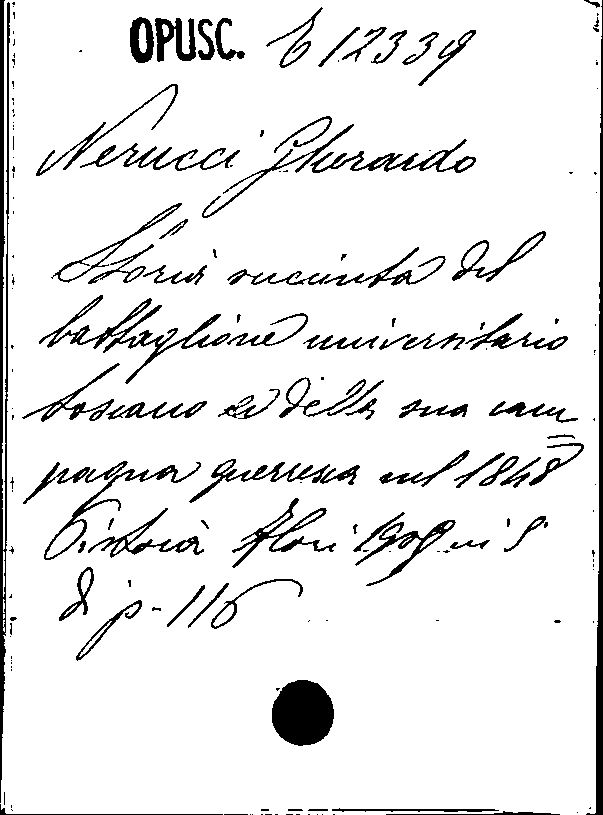 OPUSC. E 12339
Nerucci Gherardo
Storia succinta del
battaglione universitario
toscano e della sua cam
pagna guerresca nel 1848
Pistoia Flori 1908 in 8
di p. 116